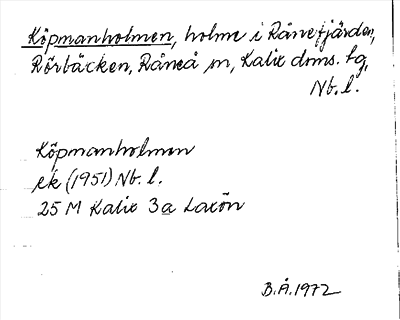 Köpmanholmen, holme i Rånefjärden,
Rörbäcken, Råneå sn, Kalix doms. tg,
Nb. l.
Köpmanholmen
ek (1951) Nb. l.
25 M Kalix 3a Laxön
B.Å. 1972